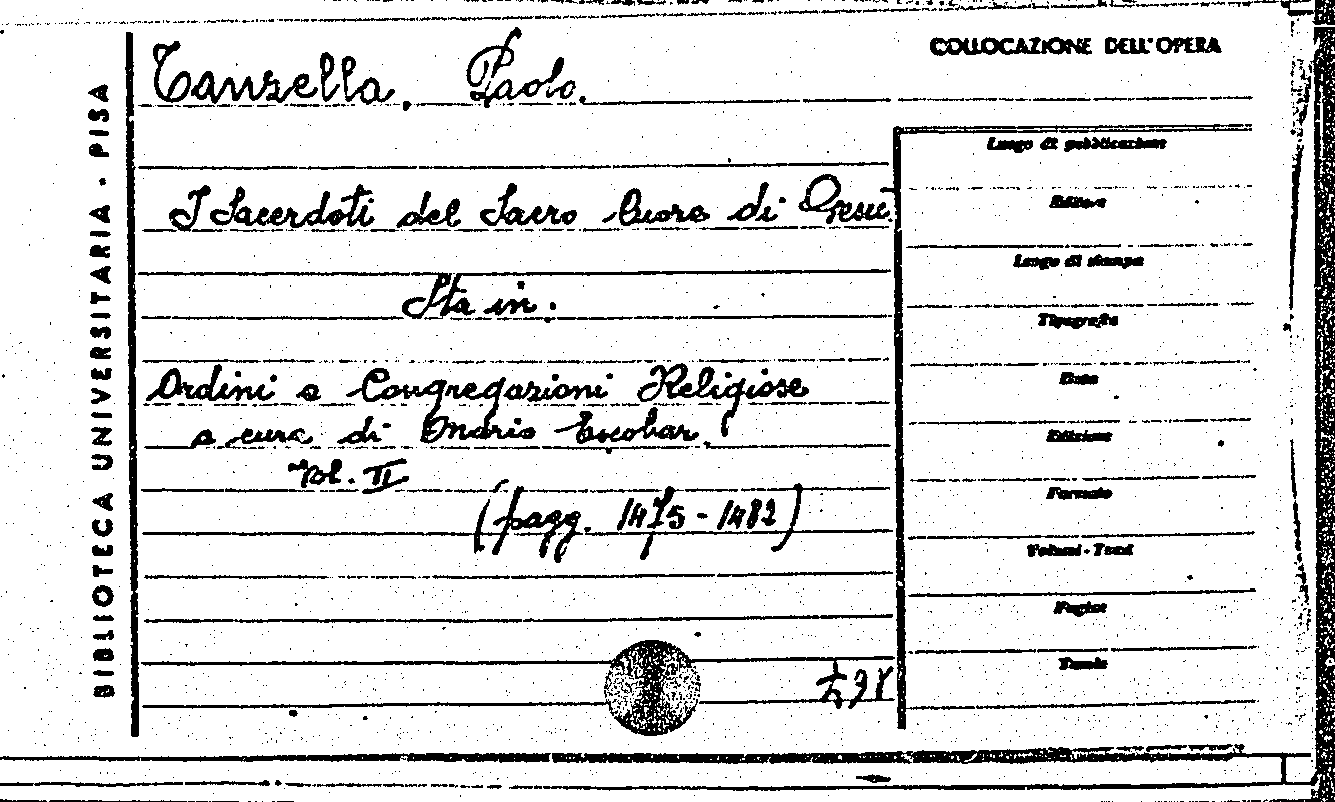 BIBLIOTECA UNIVERSITARIA - PISA
Tanzella, Paolo.
I Sacerdoti del Sacro Cuore di Gesù.
Sta in:
Ordini e Congregazioni Religiose
a cura di Mario Escobar.
vol. II
(pagg. 1475-1482)
COLLOCAZIONE DELL'OPERA
Luogo di pubblicazione
Editore
Luogo di stampa
Tipografia
Data
Edizione
Formato
Volumi - Tomi
Pagine
Tavole